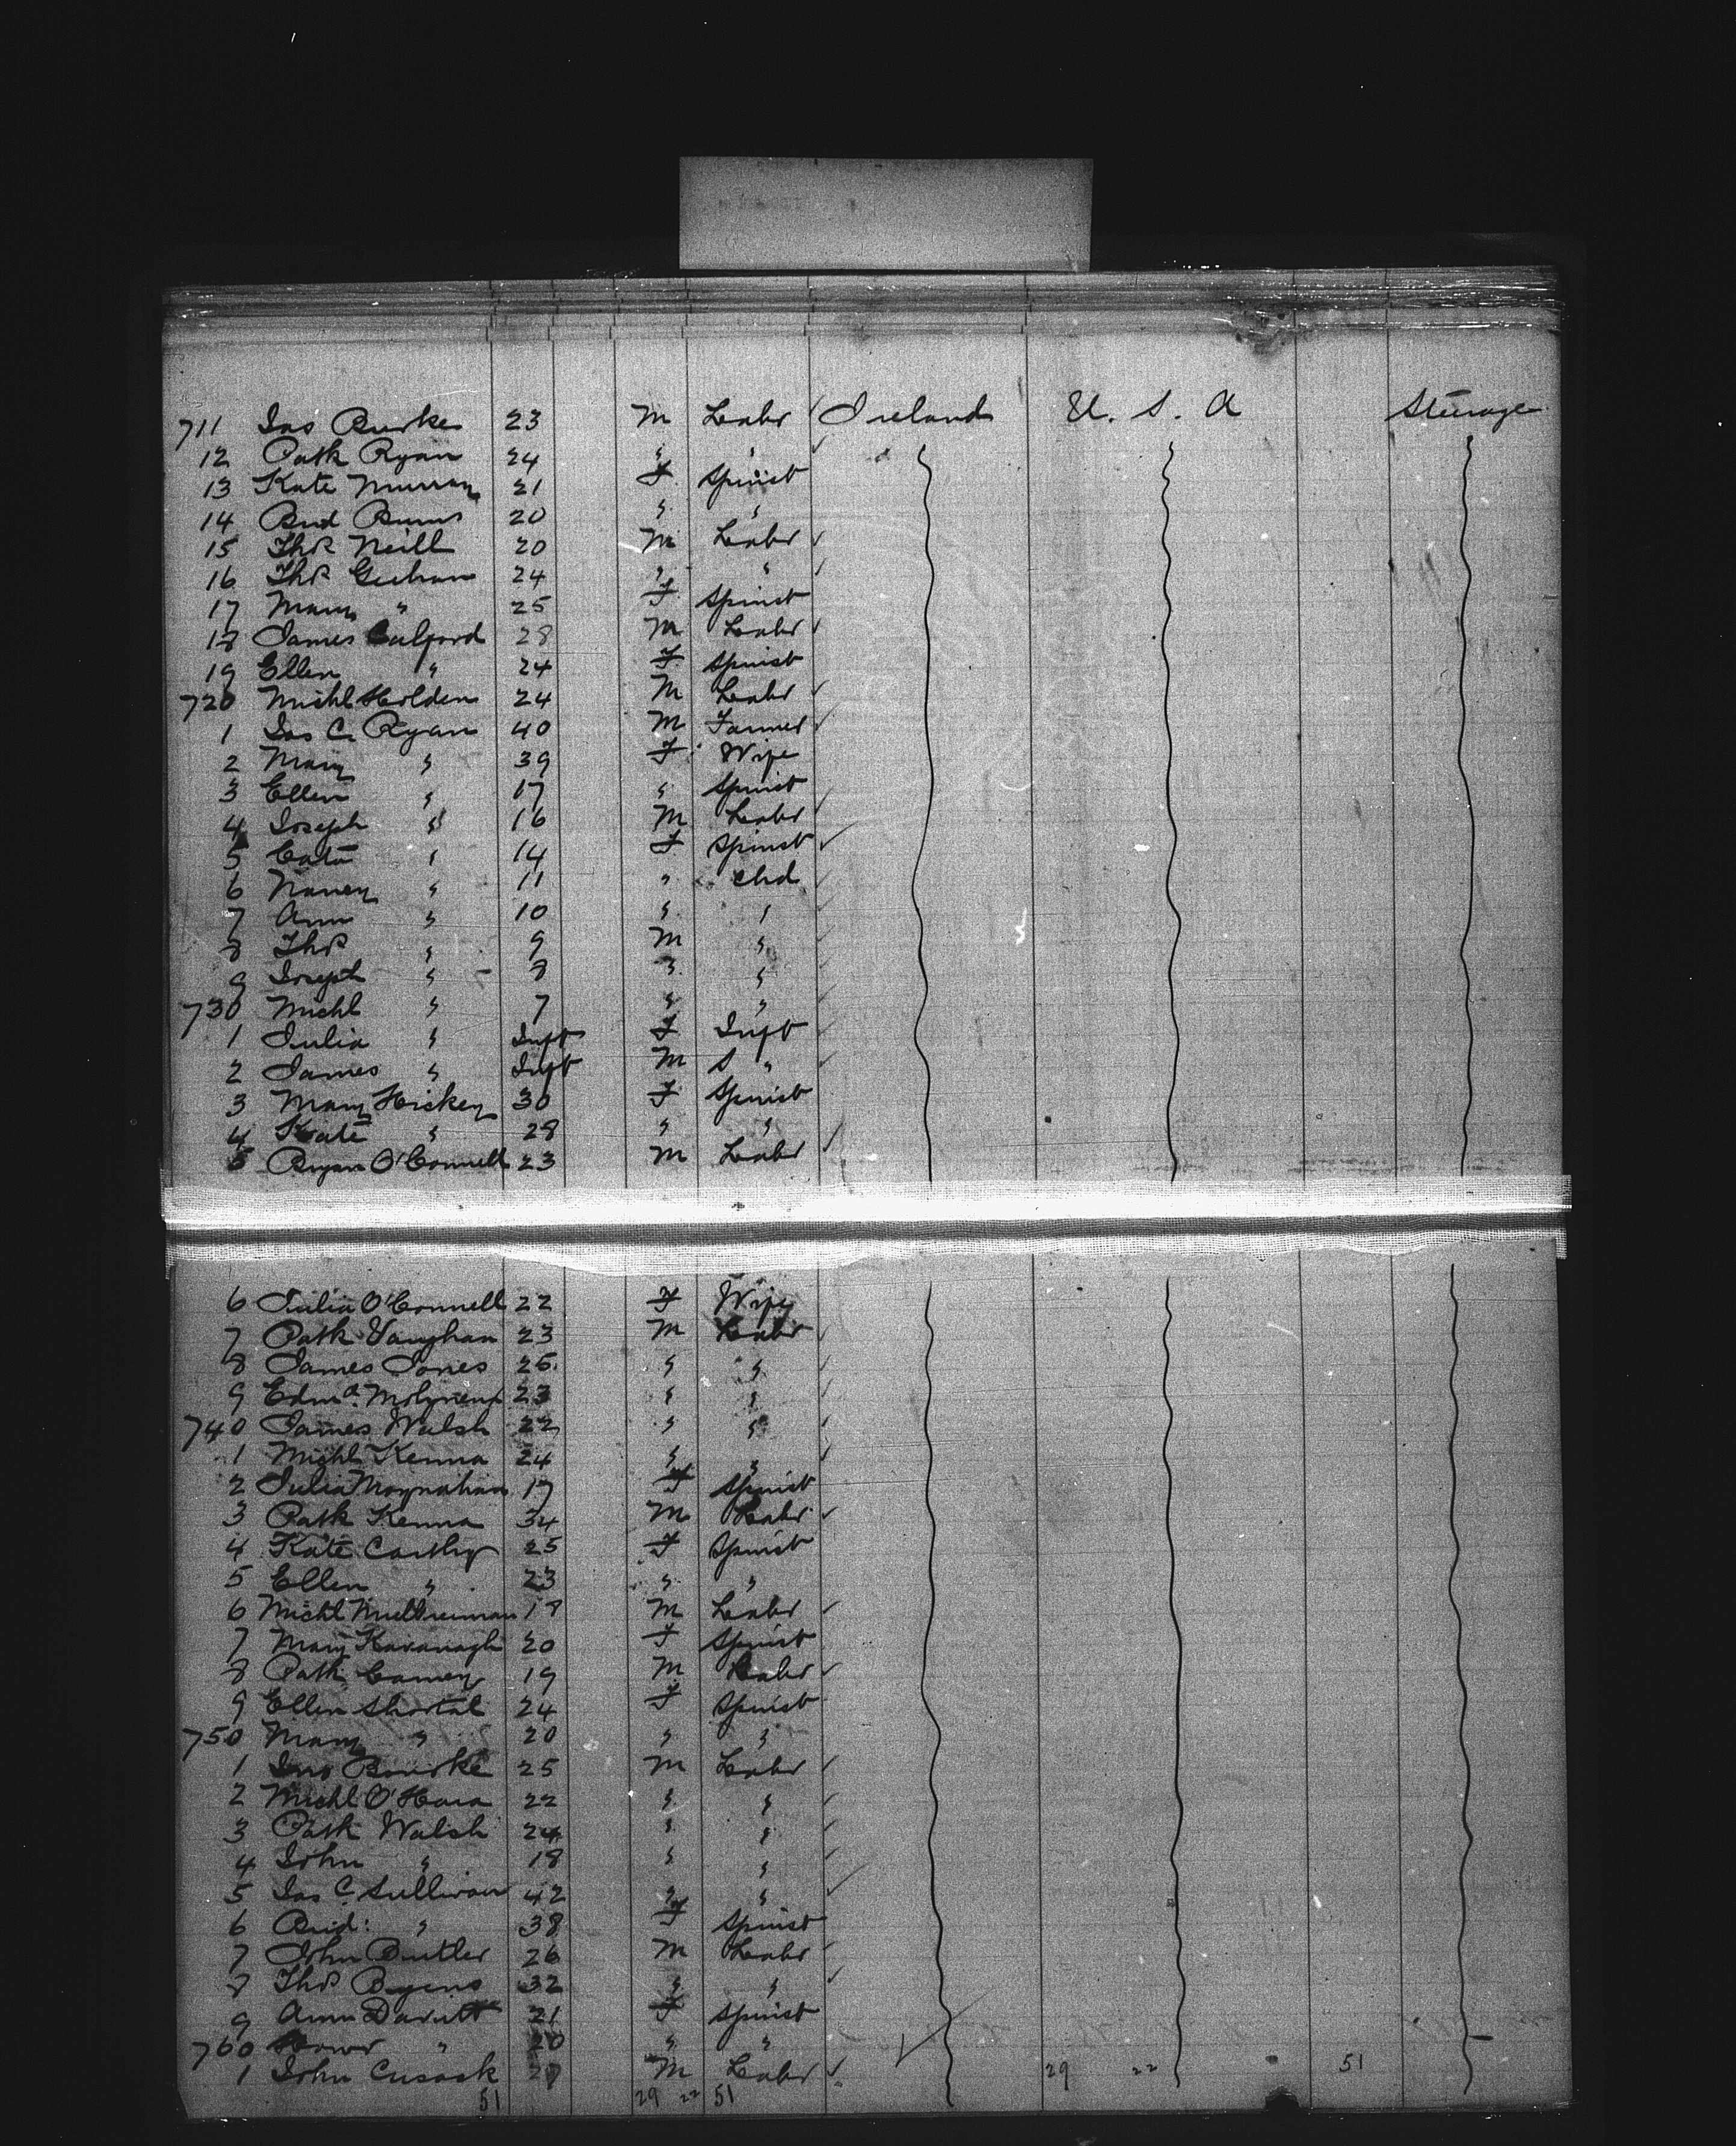 711 Jas Burke 23 M Labr Ireland U. S. A Steerage
12 Patk Ryan 24 " "
13 Kate Murray 21 F Spinst
14 Brid Burns 20 " "
15 Thos Neill 20 M Labr
16 Thos Geehan 24 " "
17 Mary " 25 F Spinst
18 James Culford 28 M Labr
19 Ellen " 24 F Spinst
720 Michl Holden 24 M Labr
1 Jas C. Ryan 40 M Farmer
2 Mary " 39 F Wife
3 Ellen " 17 " Spinst
4 Joseph " 16 M Labr
5 Cate " 14 F Spinst
6 Nancy " 11 " chd
7 Ann " 10 " "
8 Thos " 9 M "
9 Joseph " 8 " "
730 Michl " 7 " "
1 Julia " Inft F Inft
2 James " Inft M "
3 Mary Hickey 30 F Spinst
4 Kate " 28 " "
5 Bryan O'Connell 23 M Labr
6 Julia O'Connell 22 F Wife
7 Patk Vaughan 23 M Labr
8 James Jones 25 " "
9 Edwd. Molyneux 23 " "
740 James Walsh 22 " "
1 Michl Kenna 24 " "
2 Julia Moynahan 17 F Spinst
3 Patk Kenna 34 M Labr
4 Kate Carthy 25 F Spinst
5 Ellen " 23 " "
6 Michl 18 M Labr
7 Mary Kavanagh 20 F Spinst
8 Patk 19 M Labr
9 Ellen Shortal 24 F Spinst
750 Mary " 20 " "
1 Jno Bourke 25 M Labr
2 Michl O'Hara 22 " "
3 Patk Walsh 24 " "
4 John " 18 " "
5 Jas C. Sullivan 42 " "
6 Brid: " 38 F Spinst
7 John Butler 26 M Labr
8 Thos Byens 32 " "
9 Ann Davitt 21 F Spinst
760 Honor " 20 " "
1 John Cusack 27 M Labr 29 22 51
51 29 22 51